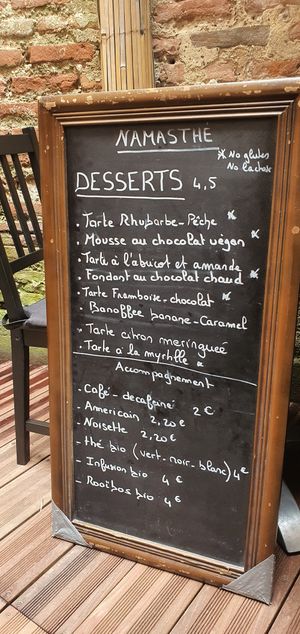 NAMASTHÉ
* No gluten
No lactose
DESSERTS 4,5
. Tarte Rhubarbe - Pêche *
. Mousse au chocolat végan *
. Tarte à l'abricot et amande *
. Fondant au chocolat chaud *
. Tarte Framboise - chocolat *
. Banoffee banane - Caramel
. Tarte citron meringuée
. Tarte à la myrtille *
Accompagnement
- Café - decafeiné 2 €
- Americain 2,20 €
- Noisette 2,20 €
- thé bio (vert - noir - blanc) 4 €
- Infusion bio 4 €
- Rooibos bio 4 €